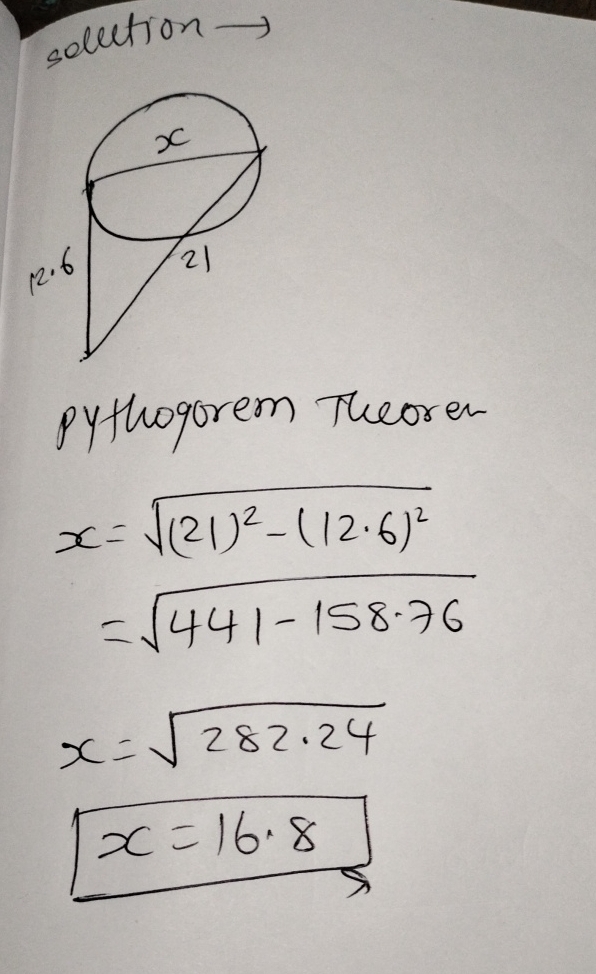 solution →
x
12.6
21
Pythogorem Theorem
x = √(21)² - (12.6)²
= √441 - 158.76
x = √282.24
x = 16.8